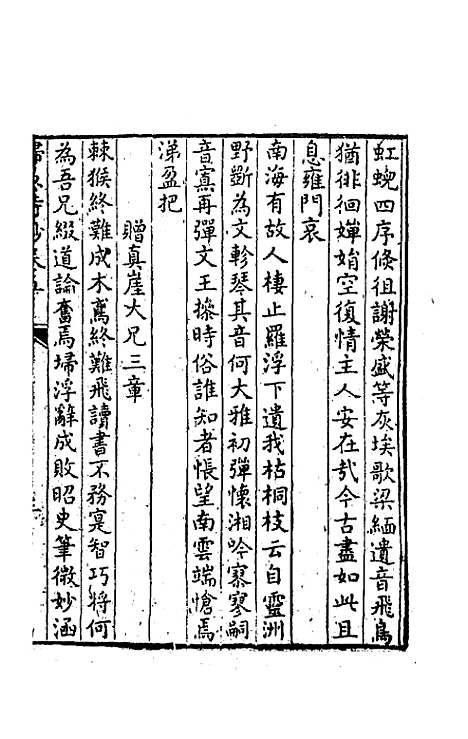 虹蜺四序倏徂謝榮盛等灰埃歌梁緬遺音飛鳥
猶徘徊嬋娟空復情主人安在㢤今古盡如此且
息雍門哀
南海有故人棲止羅浮下遺我枯桐枝云自靈洲
野斵為文軫琴其音何大雅初彈懷湘吟寥寥嗣
音寡再彈文王操時俗誰知者悵望南雲端愴焉
涕盈把
贈真崖大兄三章
棘猴終難成木鳶終難飛讀書不務寔智巧將何
為吾兄綴道論奮焉埽浮辭成敗昭史筆微妙涵